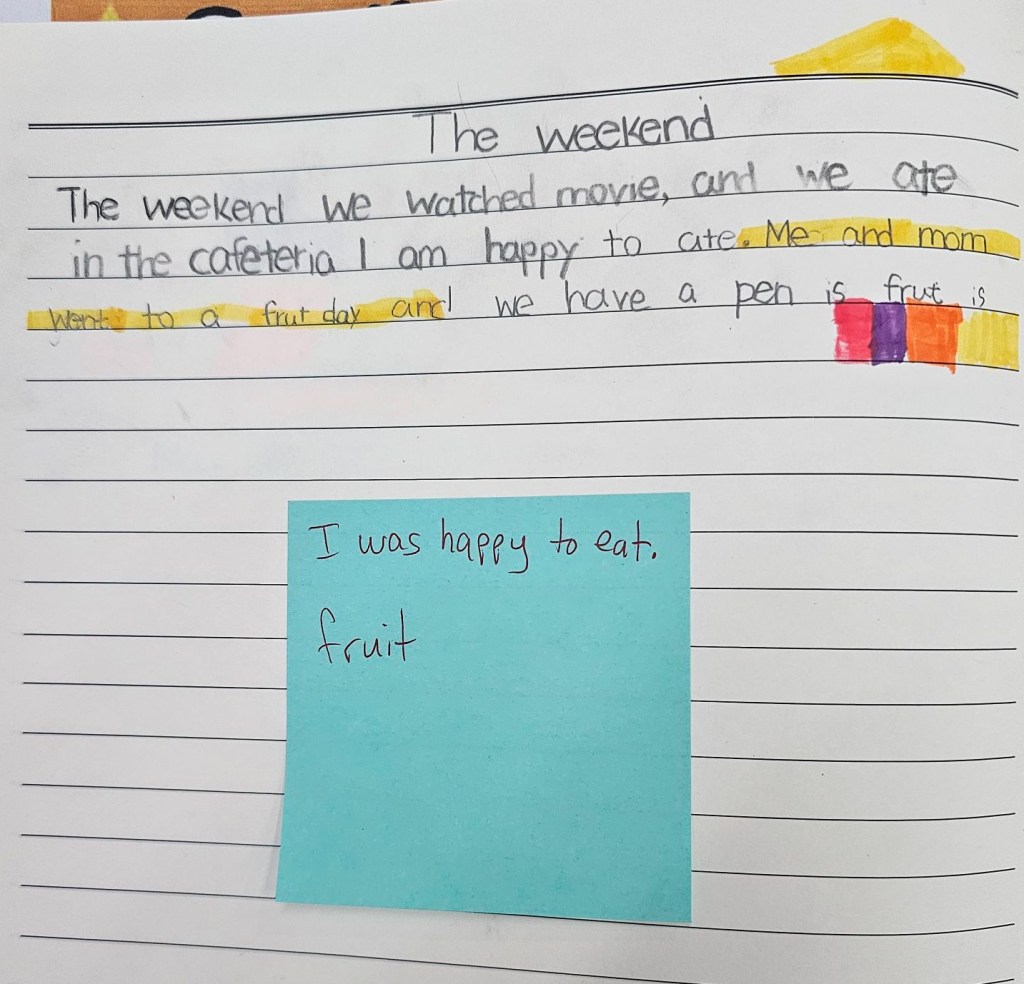 The weekend
The weekend we watched movie, and we ate
in the cafeteria I am happy to ate. Me and mom
went to a frut day and we have a pen is frut is
I was happy to eat.
fruit